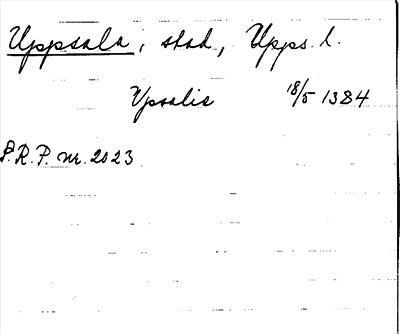 Uppsala, stad, Upps. l.
Upsalis 18/5 1384
P.R.P. nr. 2023